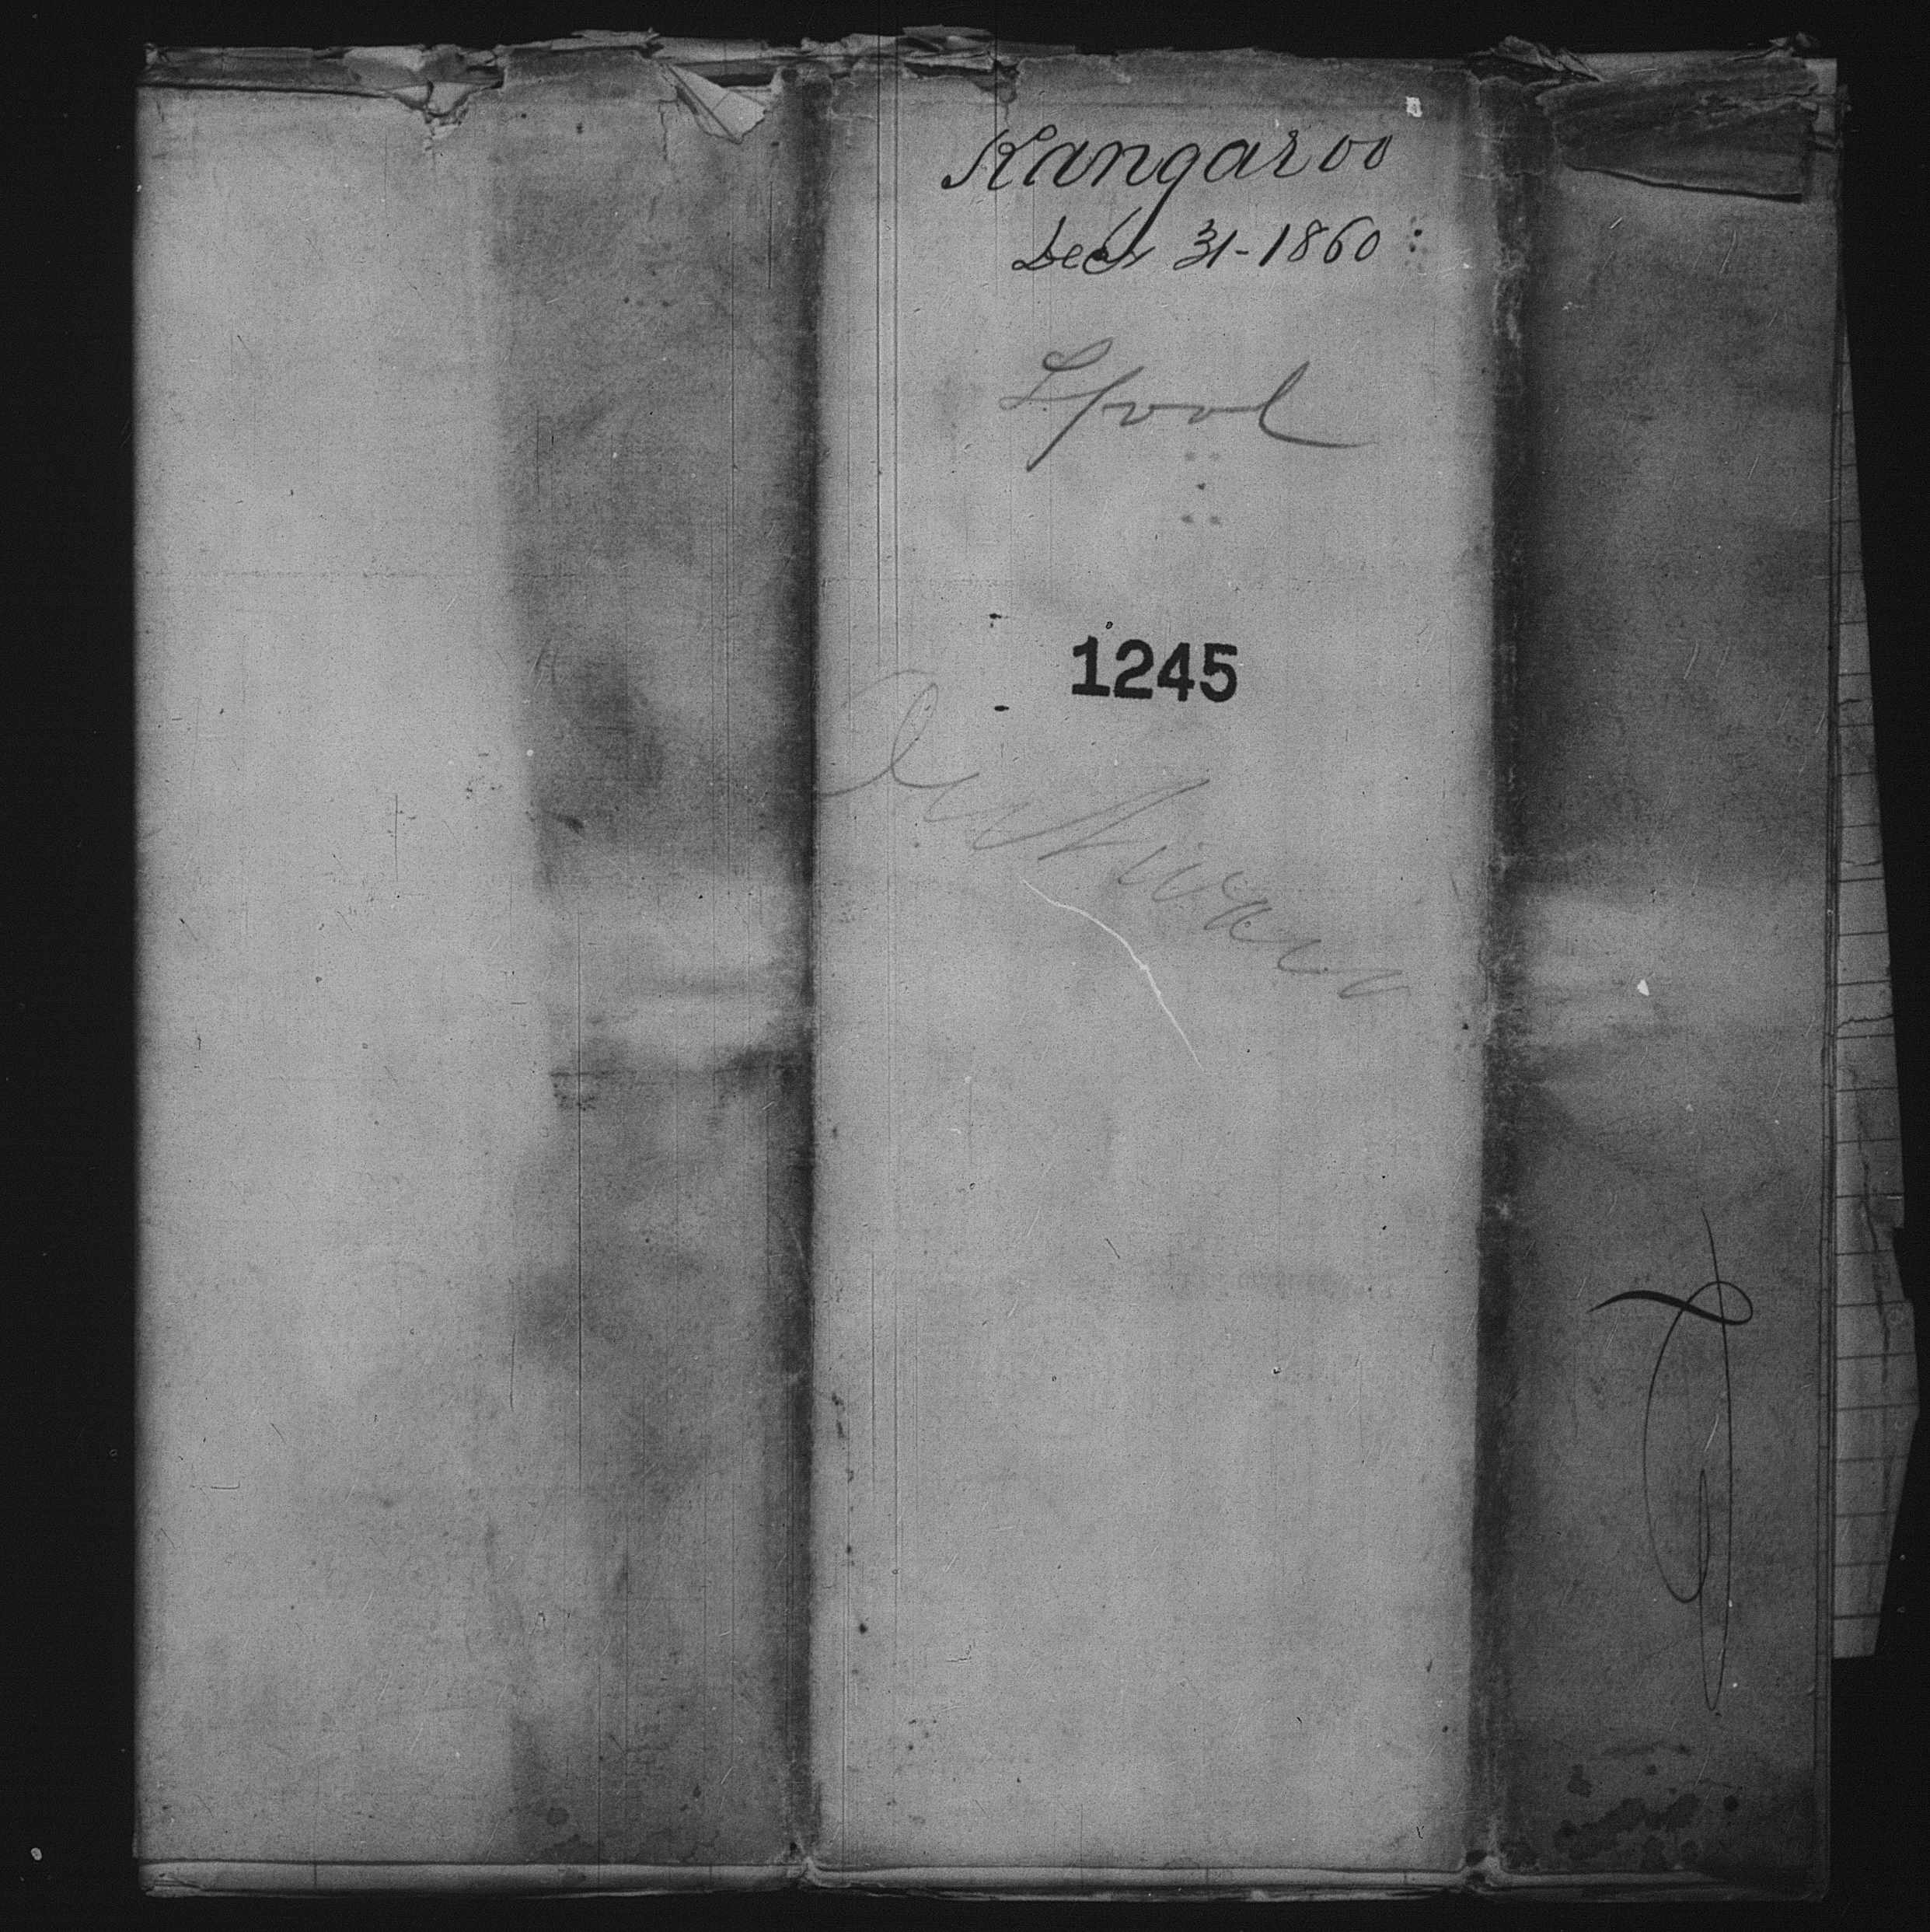 Kangaroo
Decr 31-1860
Lpool
1245